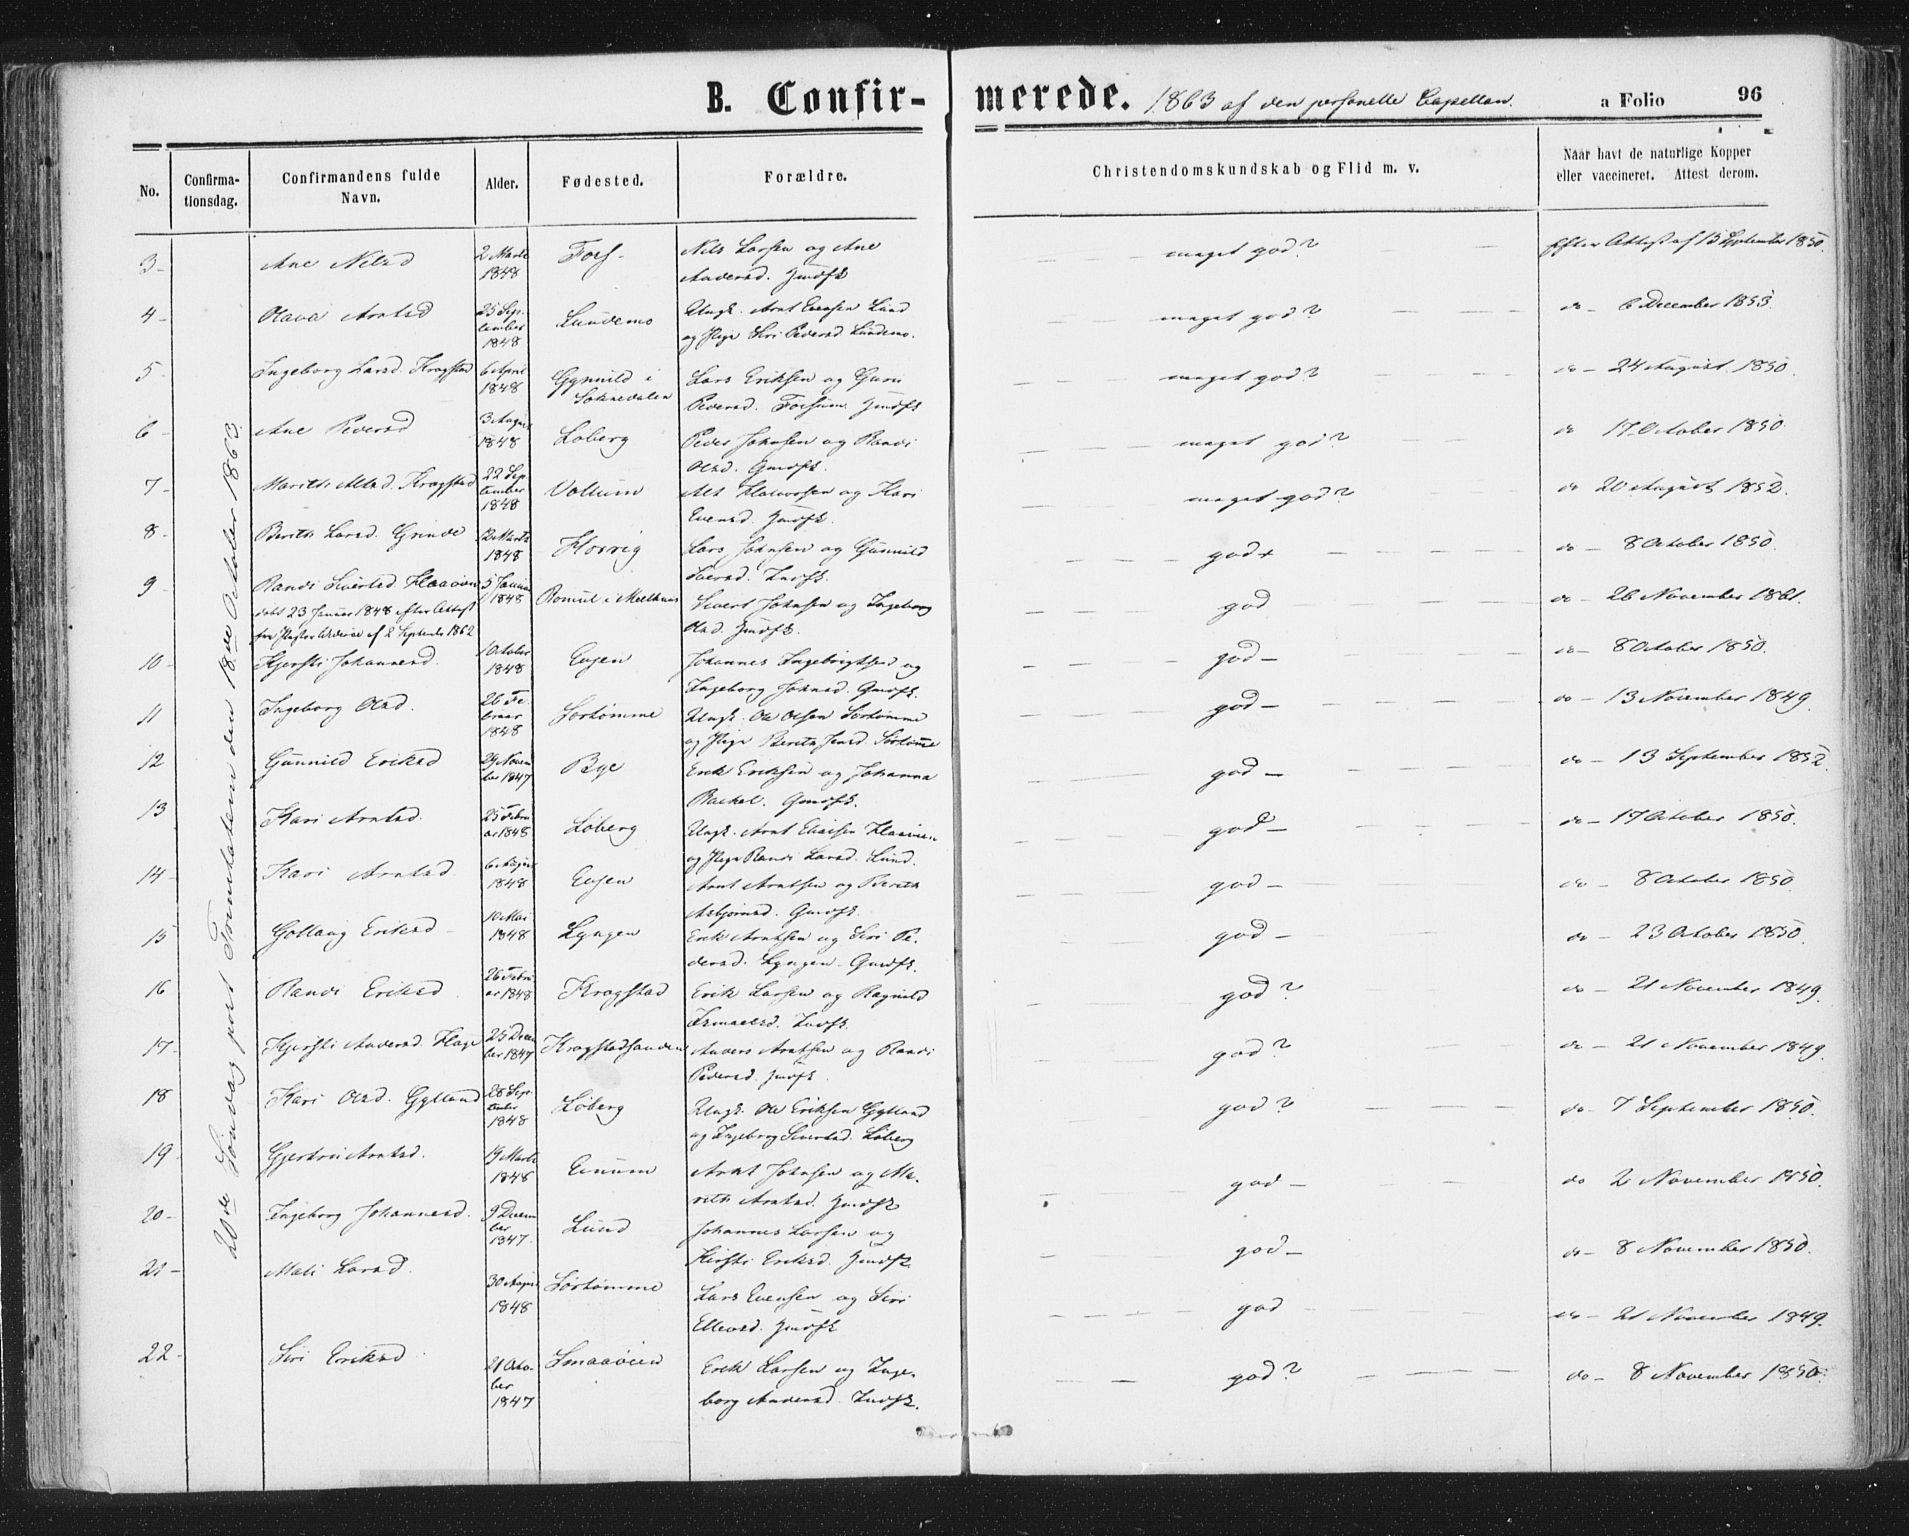 B. Confirmerede. 1863 af den personelle Capellan. a Folio 96
No. Confirmationsdag. Confirmandens fulde Navn. Alder. Fødested. Forældre. Christendomskundskab og Flid m. v. Naar havt de naturlige Kopper eller vaccineret. Attest derom.
den 18de October 1863
3 Ane Nilsd 2 Marts 1848 Fors Nils Larsen og Ane Andersd. meget god? Efter Attest af 13 September 1850.
4 Olava Arntsd 25 September 1848 Lundemo Ungk. Arnt Evensen Lund og Pige Siri Pedersd Lundemo. meget god? do 6 December 1853.
5 Ingeborg Larsd. Krogstad 6 April 1848 Gynnild i Soknedalen Lars Eriksen og Guru Pedersd. meget god? do 24 August 1850.
6 Ane Pedersd 3 August 1848 Løberg Peder Johnsen og Randi Olsd. Gmdfk. meget god? do 17 October 1850.
7 Krogstad 22 September 1848 Vollum Halvorsen og Kari Evensd. meget god? do 20 August 1852.
8 Berith Larsd. Grinde Marts 1848 Horrig Lars Johnsen og Gunnild god do 8 October 1850.
9 Randi Sivertsd 5 Januar 1848 Romul i Meelhuus Sivert Johnsen og Ingeborg Olsd. god do 26 November 1861.
døbt 23 Januar 1848 efter Attest
fra af 2 September 1862
10 Kjersti Johannesd. 1 October 1848 Evjen Johannes Ingebrigtsen og Ingeborg Johnsd. Gmdfk. god do 8 October 1850.
11 Ingeborg Olsd. 26 Februar 1848 Sørtømme Ungk. Ole Olsen Sørtømme og Pige Berith Jensd. Sørtømme god do 13 November 1849.
12 Gunnild Eriksd 29 November 1847 Bye Erik Eriksen og Johanna Gmdfk. god do 13 September 1852.
13 Kari Arntsd. 25 Februar 1848 Løberg Ungk. Arnt og Pige Randi Larsd. Lund. god do 17 October 1850.
14 Kari Arntsd 6 August 1848 Evjen Arnt Arntsen og Berith Asbjørnsd. Gmdfk. god do 8 October 1850.
15 Gollaug Eriksd 10 Mai 1848 Lyngen Erik Arntsen og Siri Pedersd. Lyngen Gmdfk. god do 23 October 1850.
16 Randi Eriksd 26 Februar 1848 Krogstad Erik Larsen og Ragnild god? do 21 November 1849.
17 Kjersti Andersd. Hage 25 December 1847 Krogstadsanden Anders Arntsen og Randi Pedersd. god? do 21 November 1849.
18 Kari Olsd. Gylland 28 September 1848 Løberg Ungk. Ole Eriksen Gylland og Ingeborg Sivertsd. Løberg god? do 7 September 1850.
19 Gjertrui Arntsd. 19 Marts 1848 Enum Arnt Johnsen og Marith Arntsd. god do 2 November 1850.
20 Ingeborg Johannesd. 9 December 1847. Lund Johannes Larsen og Kirsti Eriksd. god do 8 November 1850.
21 Mali Larsd. 30 August 1848 Sørtømme Lars Evensen og Siri Ellevsd. god do 21 November 1849.
22 Siri Eriksd 21 October 1847 Smaaøien Erik Larsen og Ingeborg Andersd. god? do 8 November 1850.